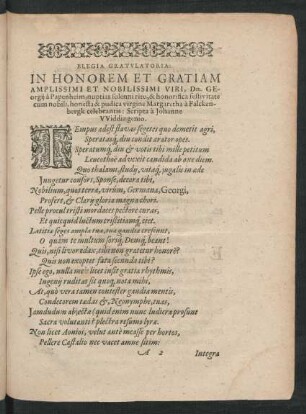 ELEGIA GRATVLATORIA:
IN HONOREM ET GRATIAM
AMPLISSIMI ET NOBILISSIMI VIRI, Dn. GE-
orgij à Papenheim, nuptias solenni ritu, & honorifica festivitate
cum nobili, honesta & pudica virgine Margaretha à Falcken-
bergk celebrantis: Scripta à Johanne
VViddingenio.
TEmpus adest flavas segetes quo demetit agri,
Speratasq́, diu condit arator opes.
Speratumq́, diu & votis tibi mille petitum
Leucothoë advivit candida ab axe diem.
Quo thalamis, studÿ, vitæq́, jugalis in æde
Jungetur consors, Sponse, decora tibi,
Nobilium, quas terra, virûm, Germana, Georgi,
Profert, & Clarÿ gloria magna chori.
Pelle procul tristi mordaces pectore curas,
Et quicquid luctum tristitiamq́, vint.
Lætitia seges ampla tua, tua gaudia crescunt,
O quàm te multum sorsq́, Deusq́, beant!
Quis, nisi livor edax, tibi non gratetur honores?
Quis non exoptet fata secunda tibi?
Ipse ego, nulla mei licet insit gratia rhythmis,
Ingenÿ ruditas sit quoq́, nota mihi,
At, quò vera tamen contester gaudia mentis,
Conditorem tædas &, Neonymphe, tuas,
Jamdudum abjecta (quid enim nunc ludicra prosunt
Sacra voluntati?) plectra resumo lyræ.
Non licet Aonios, velut antè measse per hortos,
Pellere Castalio nec vacet amne sitim:
A 2
Integra